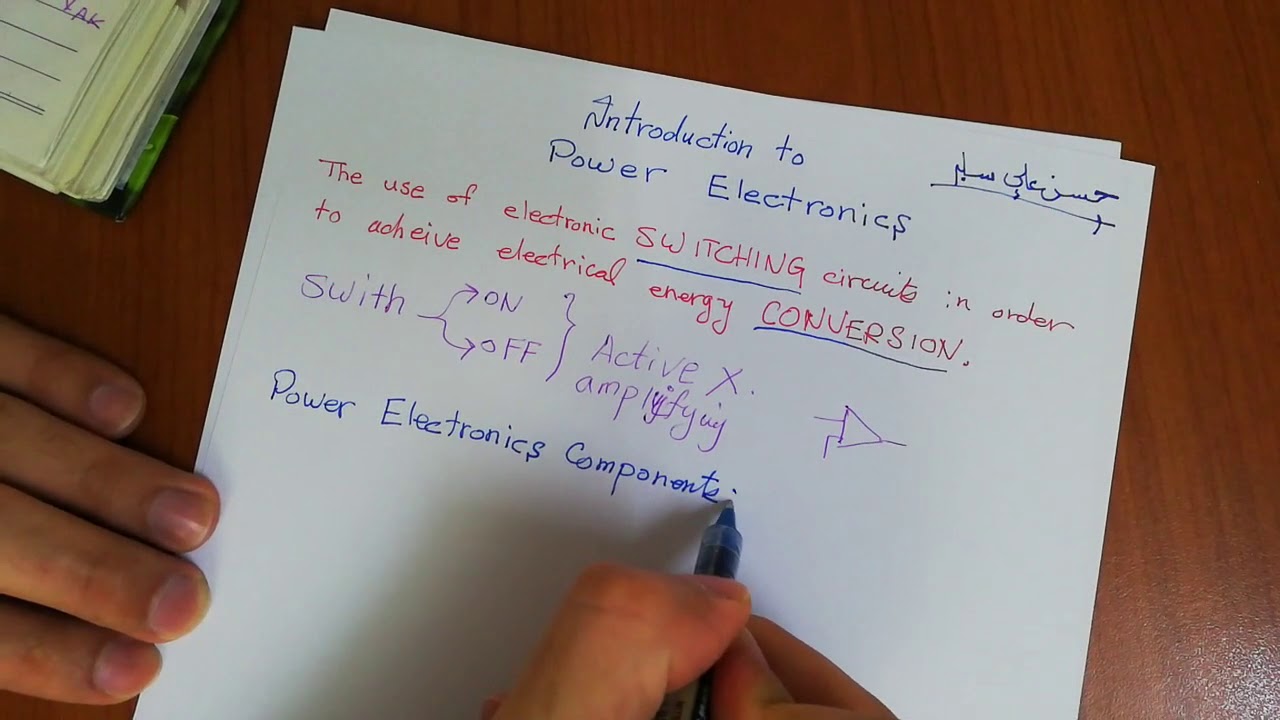 YAK
Introduction to
Power Electronics
حسن علي
The use of electronic SWITCHING circuits in order
to acheive electrical energy CONVERSION.
Swith
ON
OFF
Active X.
amplifying
Power Electronics Components: